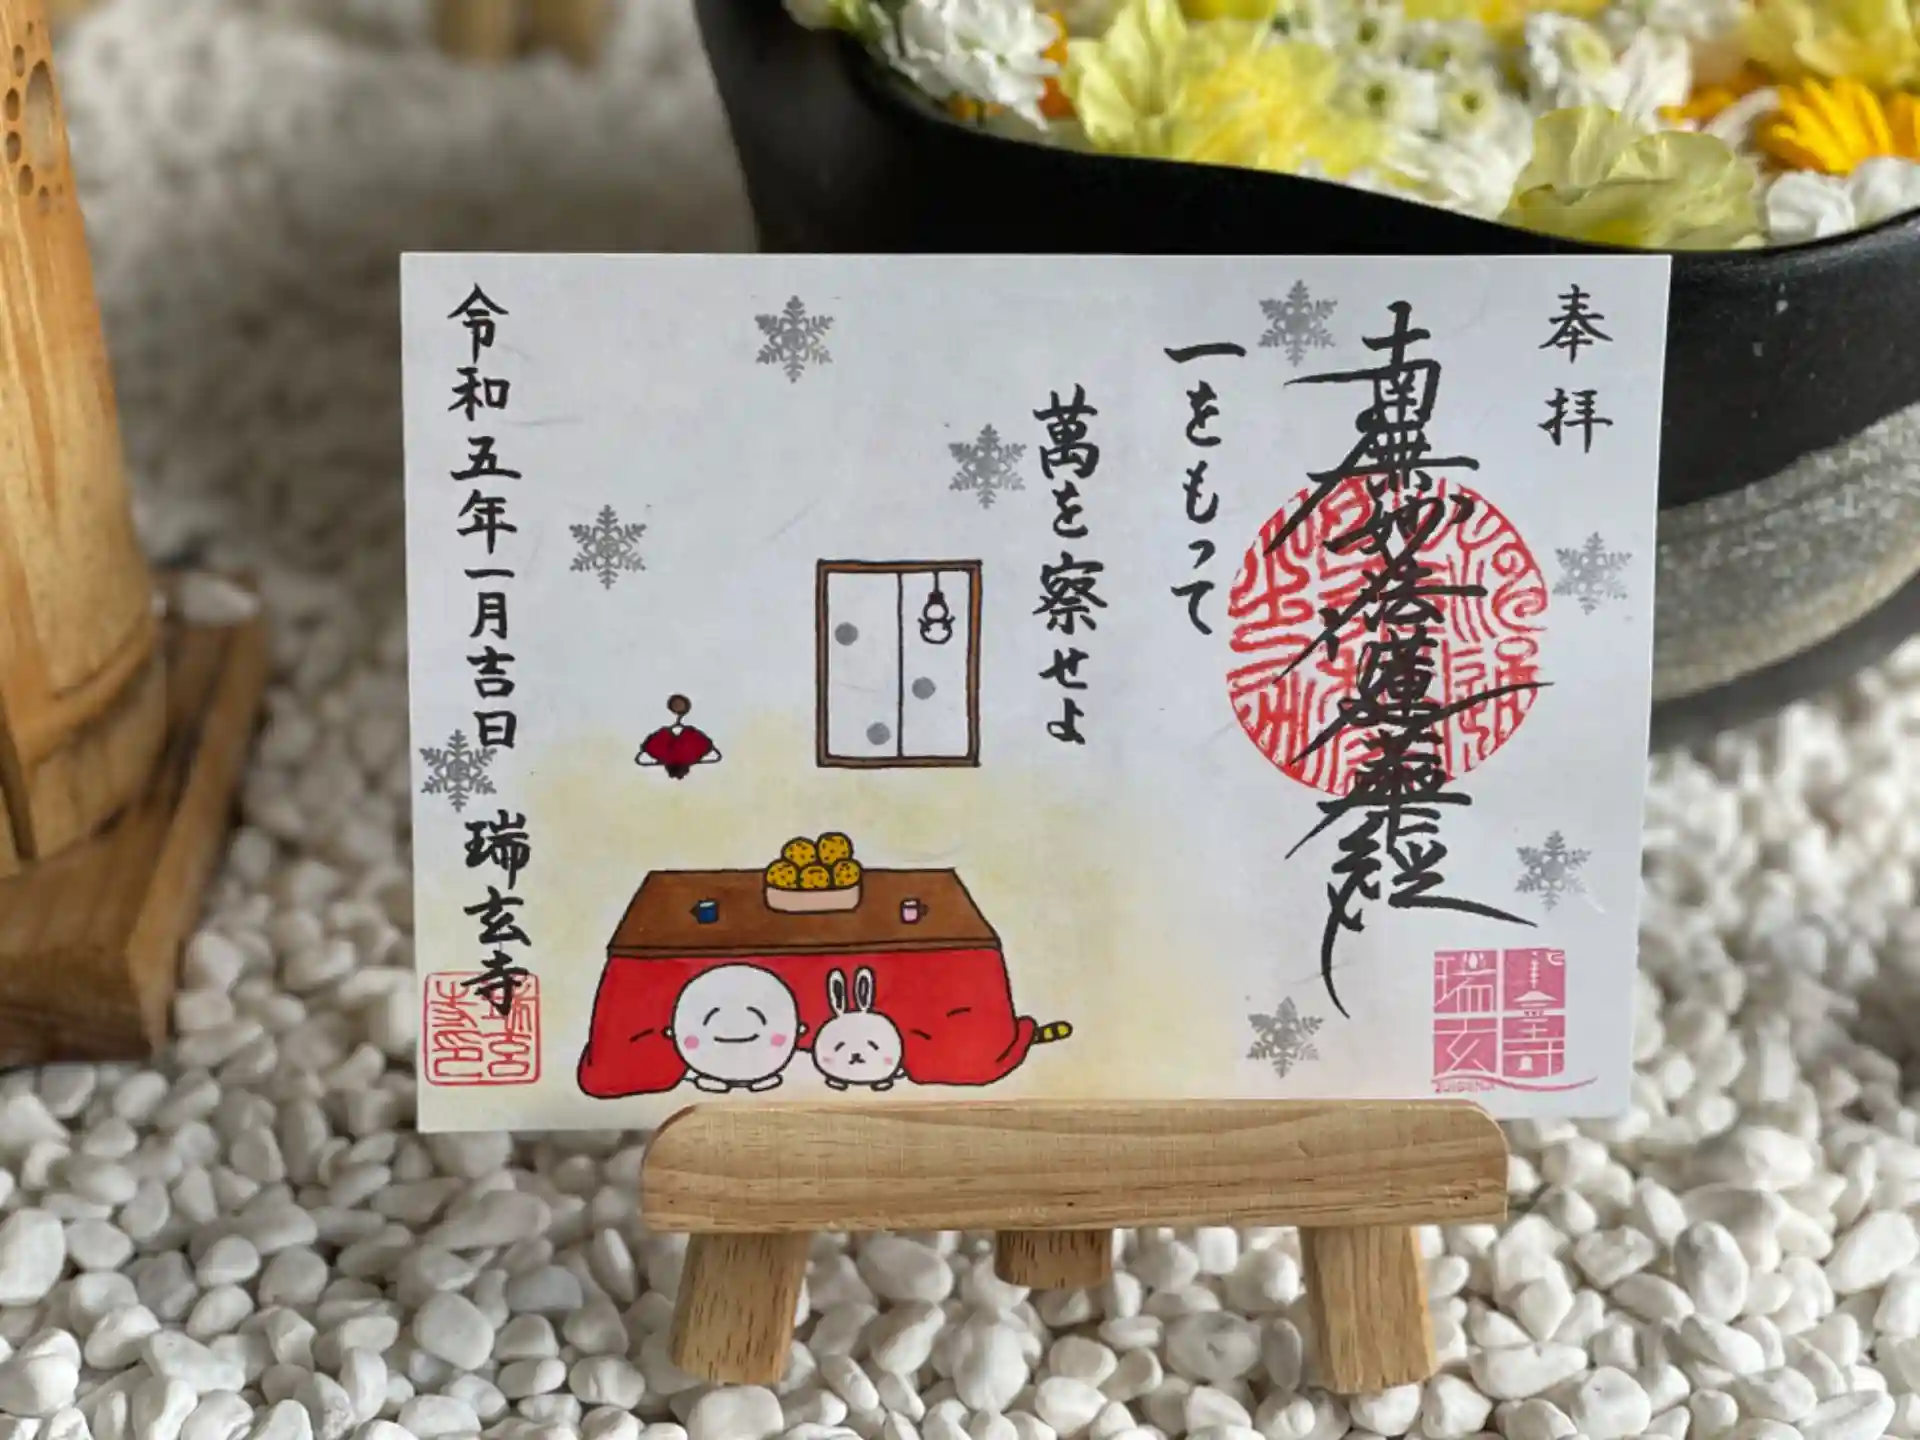 奉拝
南無妙法蓮華経
一をもって
萬を察せよ
令和五年一月吉日 瑞玄寺
瑞玄寺